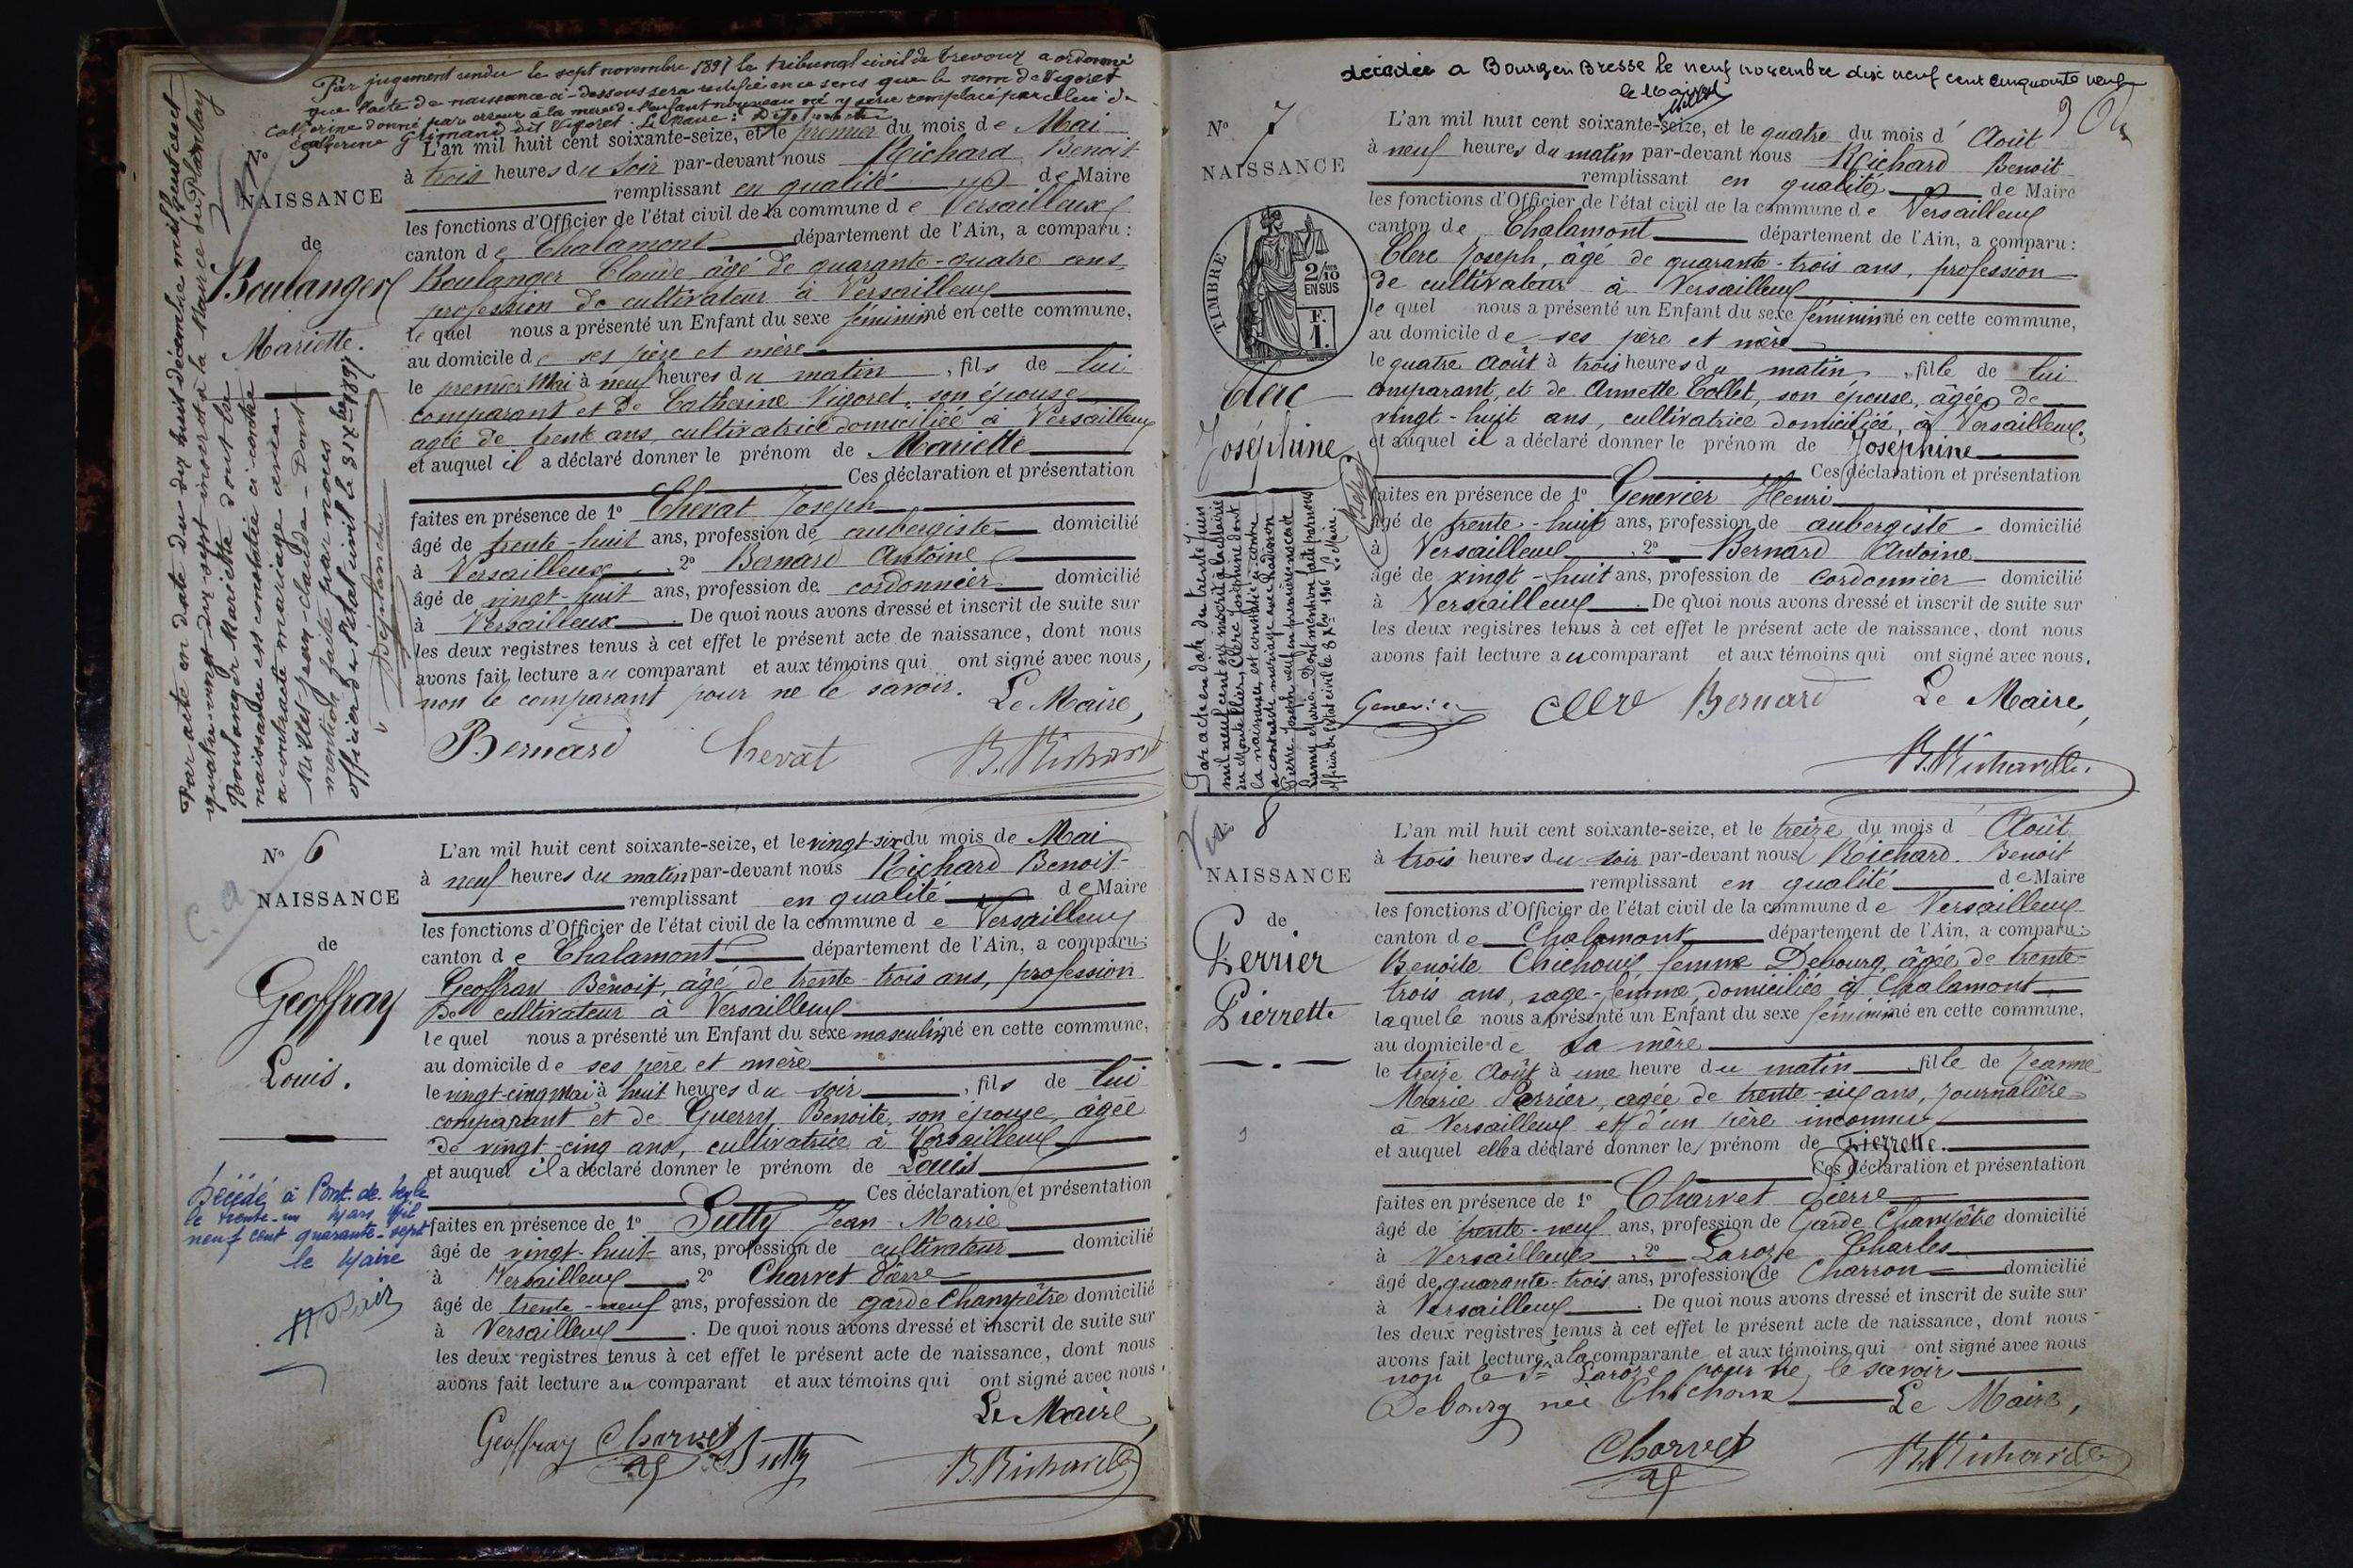 Par jugement rendu le sept novembre 1897 le tribunal civil de Trevoux a ordonné
que l'acte de naissance ci-dessous sera rectifié en ce sens que le nom de Vigoret
Catherine donné par erreur à la mère de l'enfant nouveau né y sera remplacé par celui de
Catherine Grimand dit Vigoret. Le Maire :
Par acte en date du dix huit décembre mil huit cent
quatre vingt dix sept inscrit à la Mairie du Plantay
Boulanger Mariette dont la
naissance est constatée ci-contre
a contracté mariage avec
Millet Jean-Claude - Dont
mention faite par nous
officier de l'état civil le 31 Xbre 1897
Nº 5
NAISSANCE
de
Boulanger
Mariette.
L'an mil huit cent soixante-seize, et le premier du mois de Mai
à trois heures du soir par-devant nous Richard Benoit
remplissant en qualité de Maire
les fonctions d'Officier de l'état civil de la commune de Versailleux
canton de Chalamont département de l'Ain, a comparu :
Boulanger Claude, âgé de quarante-quatre ans,
profession de cultivateur à Versailleux
le quel nous a présenté un Enfant du sexe féminin né en cette commune,
au domicile de ses père et mère
le premier Mai à neuf heures du matin, fils de lui
comparant et de Catherine Vigoret, son épouse
agée de trente ans, cultivatrice domiciliée à Versailleux
et auquel il a déclaré donner le prénom de Mariette
Ces déclaration et présentation
faites en présence de 1º Chevat Joseph
âgé de trente-huit ans, profession de aubergiste domicilié
à Versailleux, 2º Bernard Antoine
âgé de vingt-huit ans, profession de cordonnier domicilié
à Versailleux. De quoi nous avons dressé et inscrit de suite sur
les deux registres tenus à cet effet le présent acte de naissance, dont nous
avons fait lecture au comparant et aux témoins qui ont signé avec nous,
non le comparant pour ne le savoir. Le Maire,
Bernard Chevat B. Richard
Nº 6
NAISSANCE
de
Geoffray
Louis.
C. a
Décédé à Pont-de-Veyle
le trente-un Mars mil
neuf cent quarante-sept
le Maire
L'an mil huit cent soixante-seize, et le vingt-six du mois de Mai
à neuf heures du matin par-devant nous Richard Benoit
remplissant en qualité de Maire
les fonctions d'Officier de l'état civil de la commune de Versailleux
canton de Chalamont département de l'Ain, a comparu :
Geoffray Benoit, âgé de trente-trois ans, profession
de cultivateur à Versailleux
le quel nous a présenté un Enfant du sexe masculin né en cette commune,
au domicile de ses père et mère
le vingt-cinq mai à huit heures du soir, fils de lui
comparant et de Guerry Benoite, son épouse, âgée
de vingt-cinq ans, cultivatrice à Versailleux
et auquel il a déclaré donner le prénom de Louis
Ces déclaration et présentation
faites en présence de 1º Sutty Jean-Marie
âgé de vingt-huit ans, profession de cultivateur domicilié
à Versailleux, 2º Charvet Pierre
âgé de trente-neuf ans, profession de garde Champêtre domicilié
à Versailleux. De quoi nous avons dressé et inscrit de suite sur
les deux registres tenus à cet effet le présent acte de naissance, dont nous
avons fait lecture au comparant et aux témoins qui ont signé avec nous.
Le Maire,
Geoffray Charvet Sutty B. Richard
décédée a Bourg en Bresse le neuf novembre dix neuf cent cinquante neuf
le Maire
Nº 7
NAISSANCE
TIMBRE
2/10 EN SUS
F. 1.
Clerc
Joséphine
Par acte en date du trente juin
mil neuf cent six inscrit à la mairie
du Montellier, Clerc Joséphine dont
la naissance est constatée ci-contre
a contracté mariage avec
Pierre Joseph veuf en premières noces de
Dont mention faite par nous
officier de l'état civil le 8 Xbre 1906 Le Maire.
L'an mil huit cent soixante-seize, et le quatre du mois d'Août
à neuf heures du matin par-devant nous Richard Benoit
remplissant en qualité de Maire
les fonctions d'Officier de l'état civil de la commune de Versailleux
canton de Chalamont département de l'Ain, a comparu :
Clerc Joseph, âgé de quarante-trois ans, profession
de cultivateur à Versailleux
le quel nous a présenté un Enfant du sexe féminin né en cette commune,
au domicile de ses père et mère
le quatre Août à trois heures du matin, fille de lui
comparant, et de Annette Collet, son épouse, âgée de
vingt-huit ans, cultivatrice domiciliée, à Versailleux.
et auquel il a déclaré donner le prénom de Joséphine
Ces déclaration et présentation
faites en présence de 1º Genevier Henri
âgé de trente-huit ans, profession de aubergiste domicilié
à Versailleux, 2º Bernard Antoine
âgé de vingt-huit ans, profession de cordonnier domicilié
à Versailleux. De quoi nous avons dressé et inscrit de suite sur
les deux registres tenus à cet effet le présent acte de naissance, dont nous
avons fait lecture au comparant et aux témoins qui ont signé avec nous.
Genevier Clerc Bernard Le Maire,
B. Richard
Nº 8
NAISSANCE
de
Perrier
Pierrette
L'an mil huit cent soixante-seize, et le treize du mois d'Août
à trois heures du soir par-devant nous Richard Benoit
remplissant en qualité de Maire
les fonctions d'Officier de l'état civil de la commune de Versailleux
canton de Chalamont département de l'Ain, a comparu :
Benoite Chichoux, femme Debourg, âgée de trente-
trois ans, sage-femme, domiciliée à Chalamont
laquelle nous a présenté un Enfant du sexe féminin né en cette commune,
au domicile de sa mère
le treize Août à une heure du matin fille de Jeanne
Marie Perrier, agée de trente-six ans, journalière
à Versailleux et d'un père inconnu
et auquel elle a déclaré donner le prénom de Pierrette.
Ces déclaration et présentation
faites en présence de 1º Charvet Pierre
âgé de trente-neuf ans, profession de Garde Champêtre domicilié
à Versailleux, 2º Laroze Charles
âgé de quarante-trois ans, profession de Charron domicilié
à Versailleux. De quoi nous avons dressé et inscrit de suite sur
les deux registres tenus à cet effet le présent acte de naissance, dont nous
avons fait lecture à la comparante et aux témoins qui ont signé avec nous
non le Sr Laroze pour ne le savoir
Debourg née Chichoux Le Maire,
Charvet B. Richard